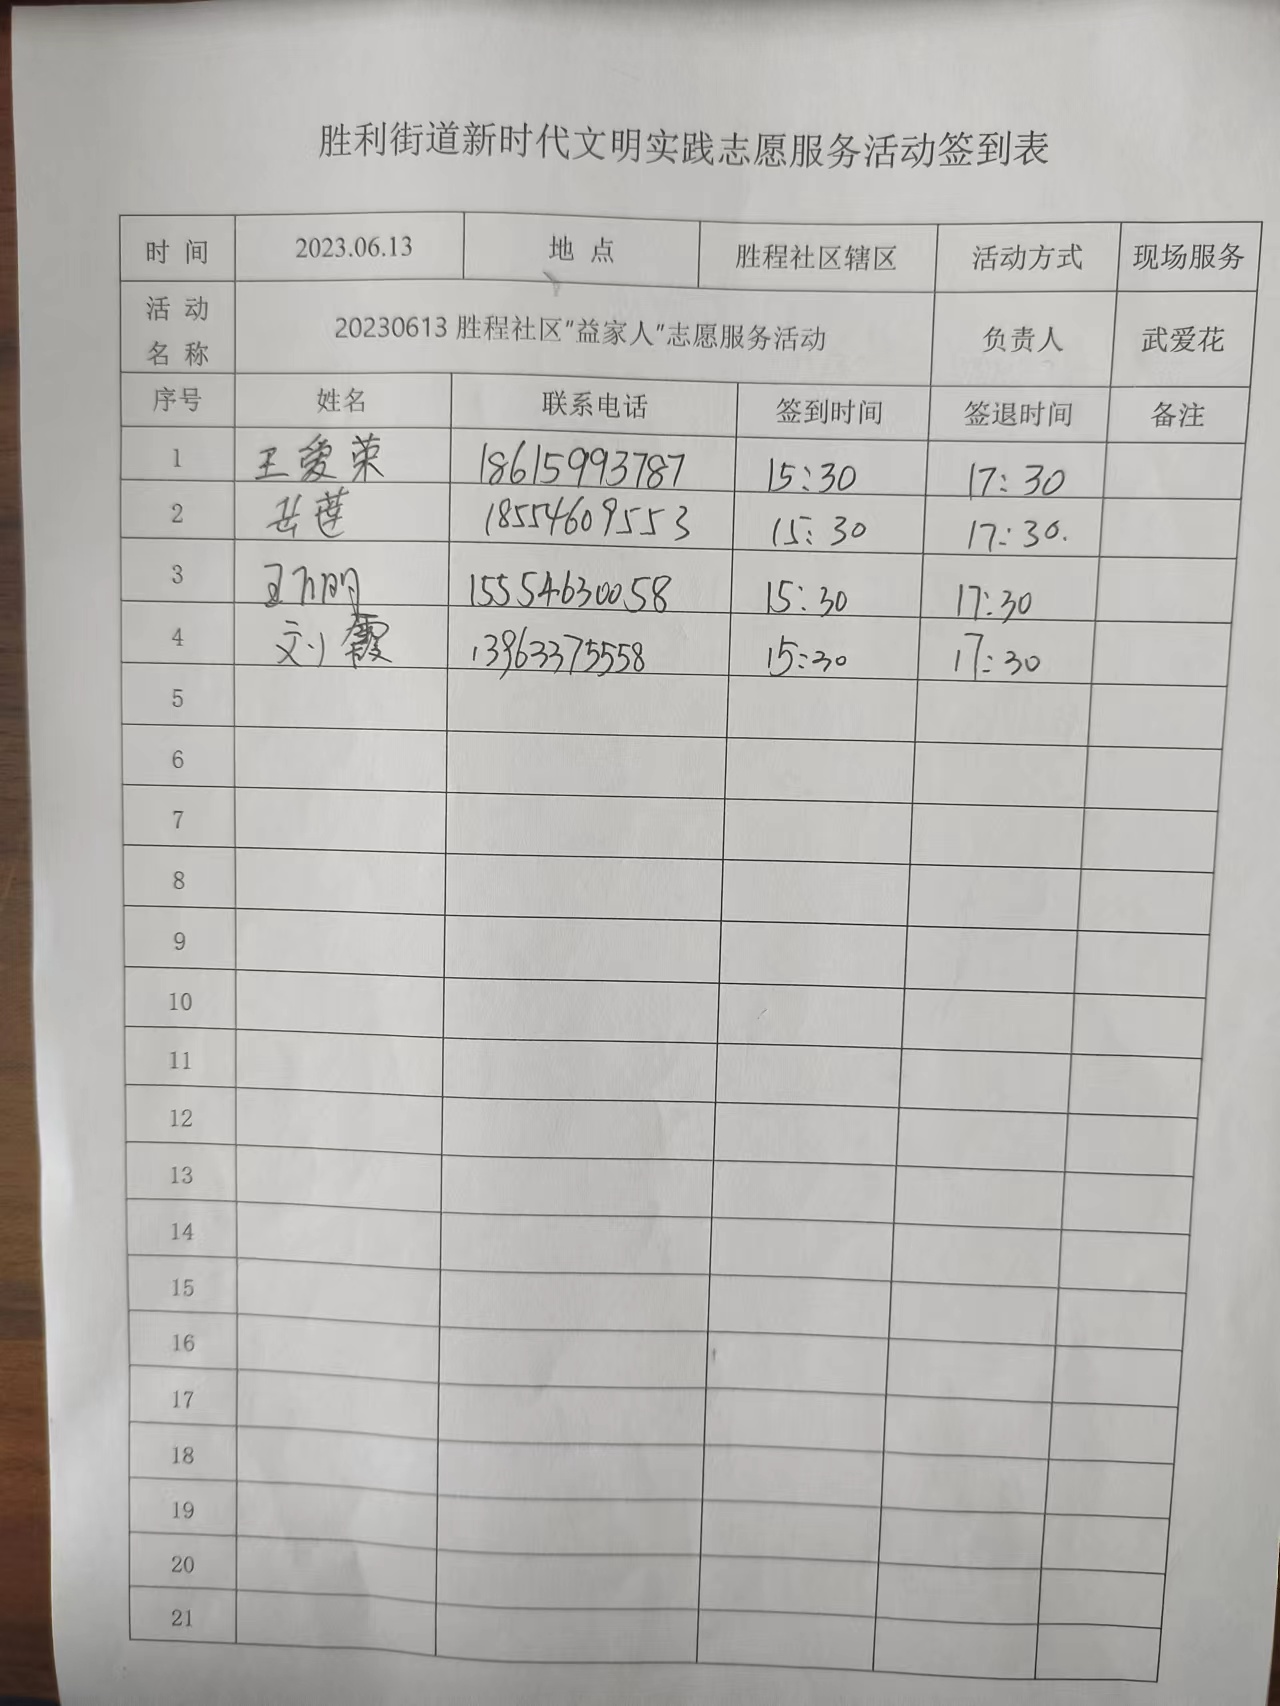 胜利街道新时代文明实践志愿服务活动签到表
时 间 2023.06.13 地 点 胜程社区辖区 活动方式 现场服务
活 动
名 称 20230613 胜程社区"益家人"志愿服务活动 负责人 武爱花
序号 姓名 联系电话 签到时间 签退时间 备注
1 王爱荣 18615993787 15:30 17:30
2 岳莲 18554609553 15:30 17:30.
3 15554630058 15:30 17:30
4 刘霞 13963375558 15:30 17:30
5
6
7
8
9
10
11
12
13
14
15
16
17
18
19
20
21